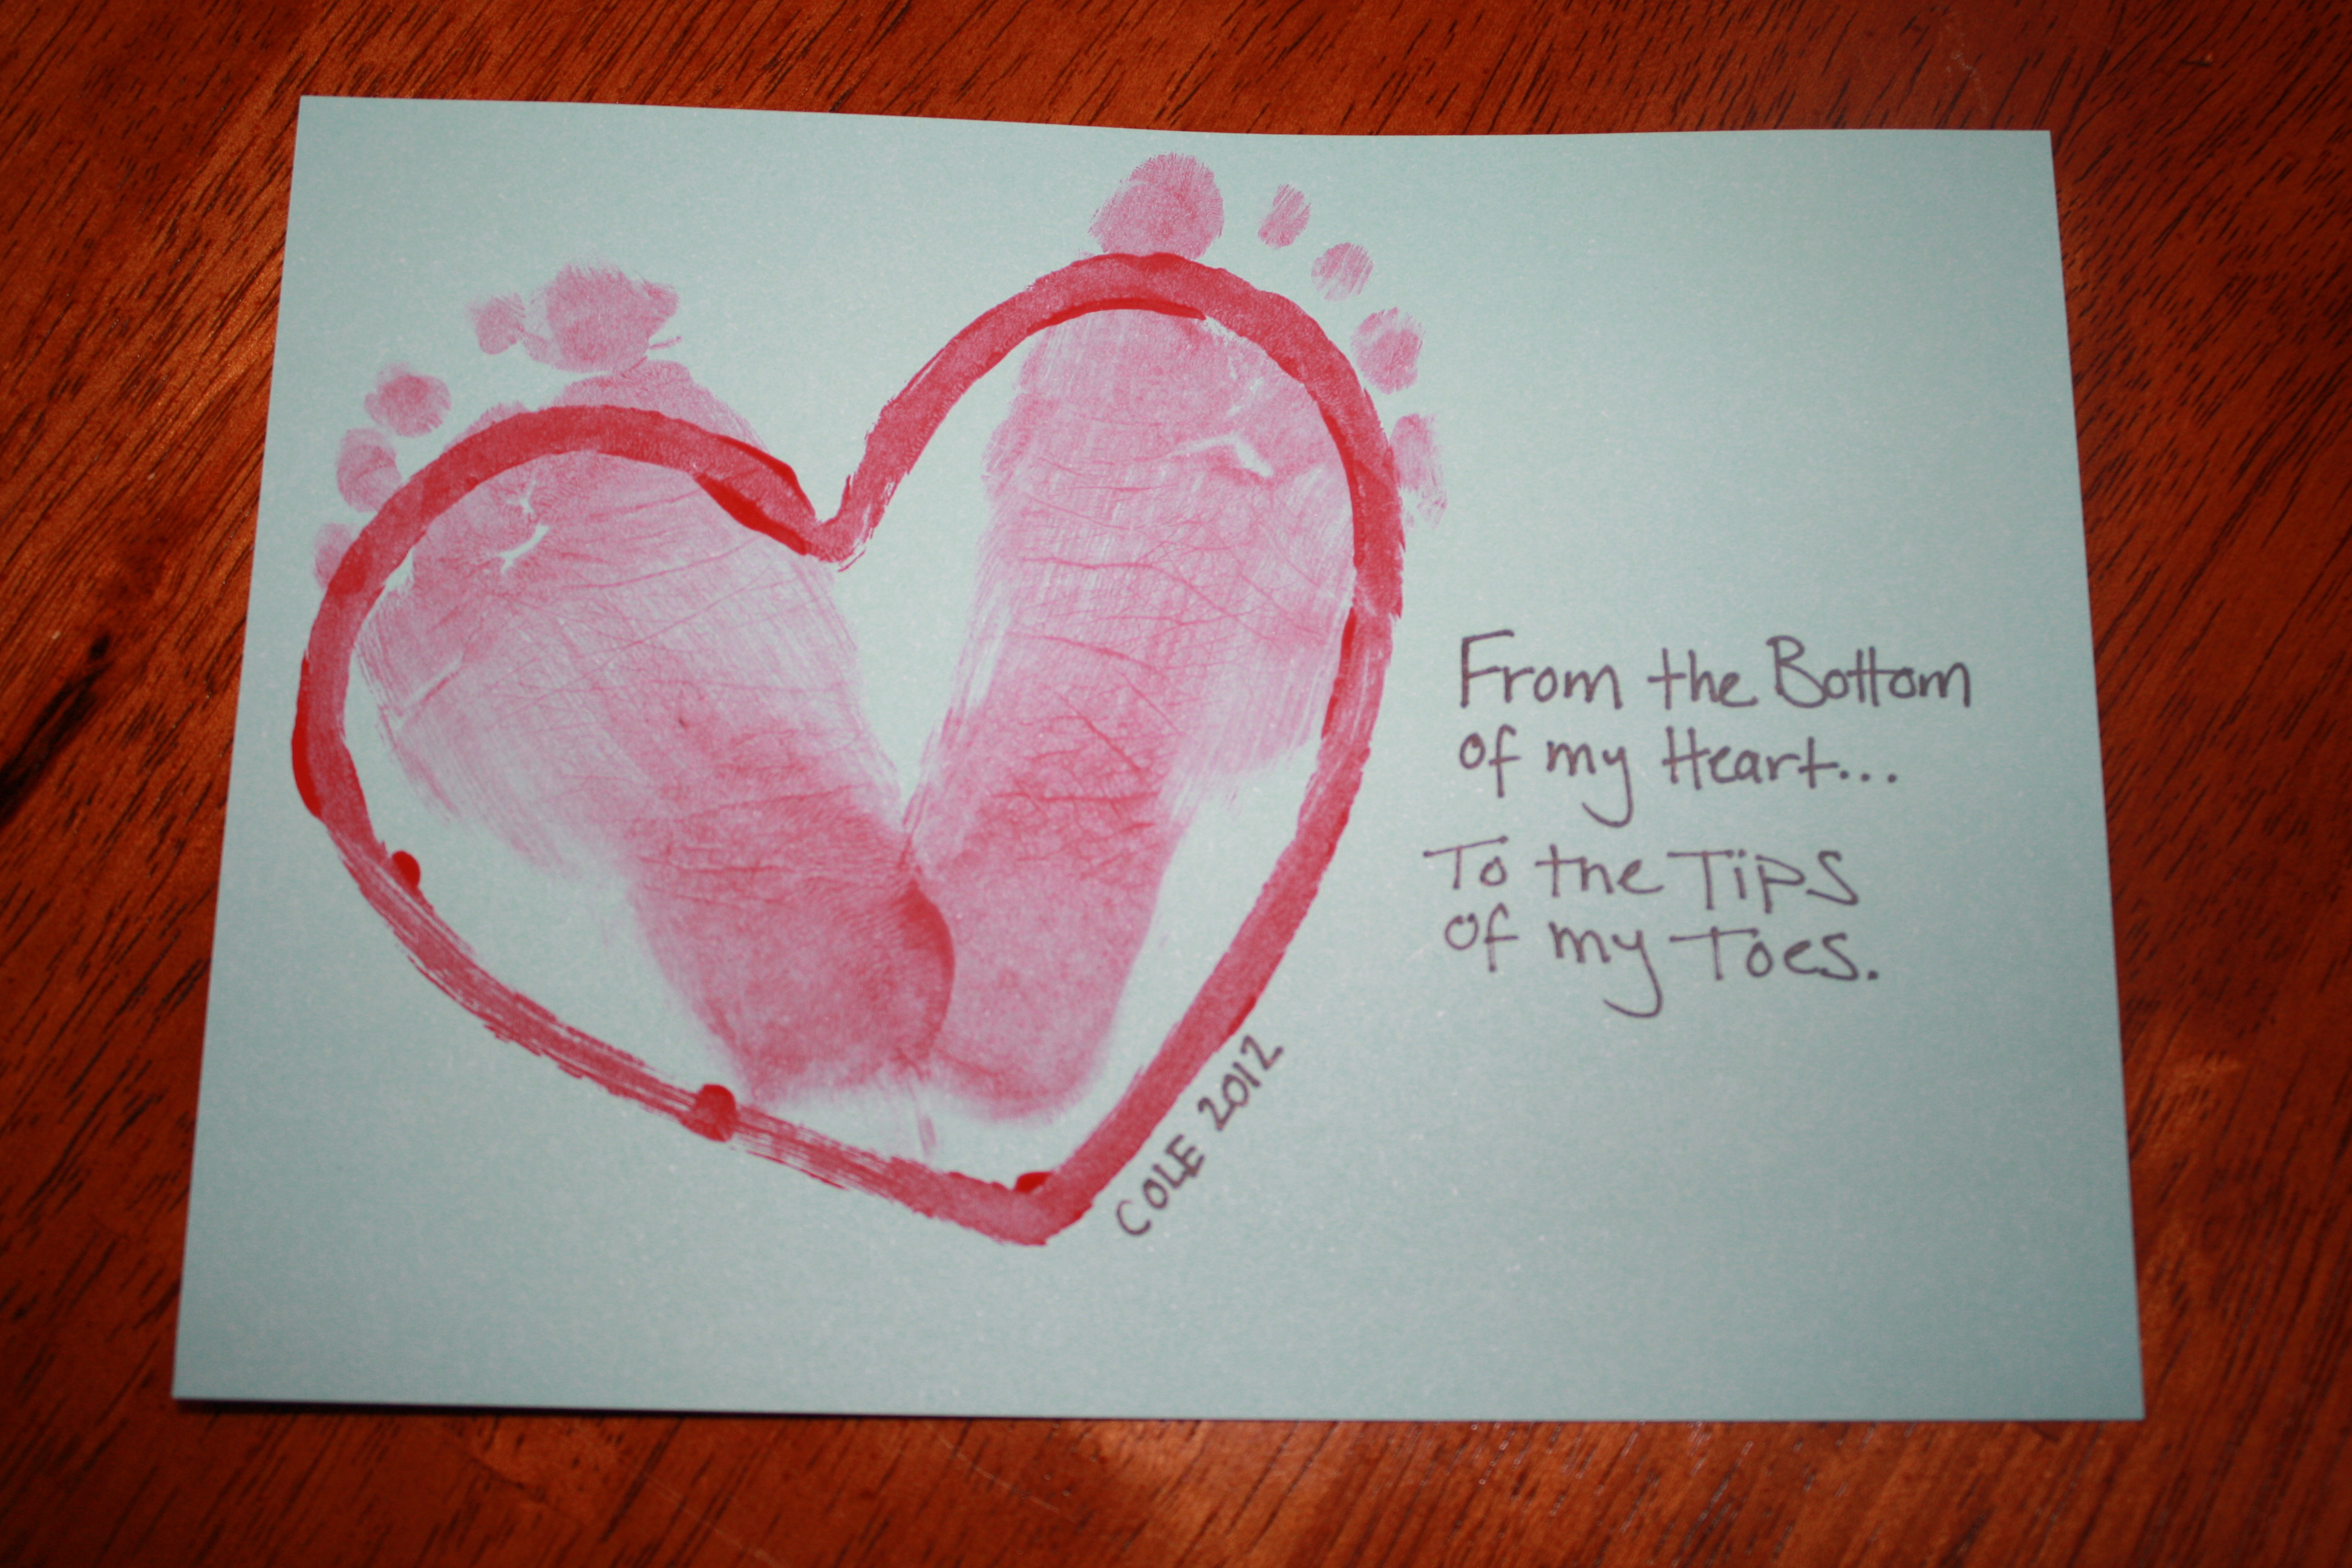 From the Bottom
of my Heart...
To the Tips
of my Toes.
COLE 2012